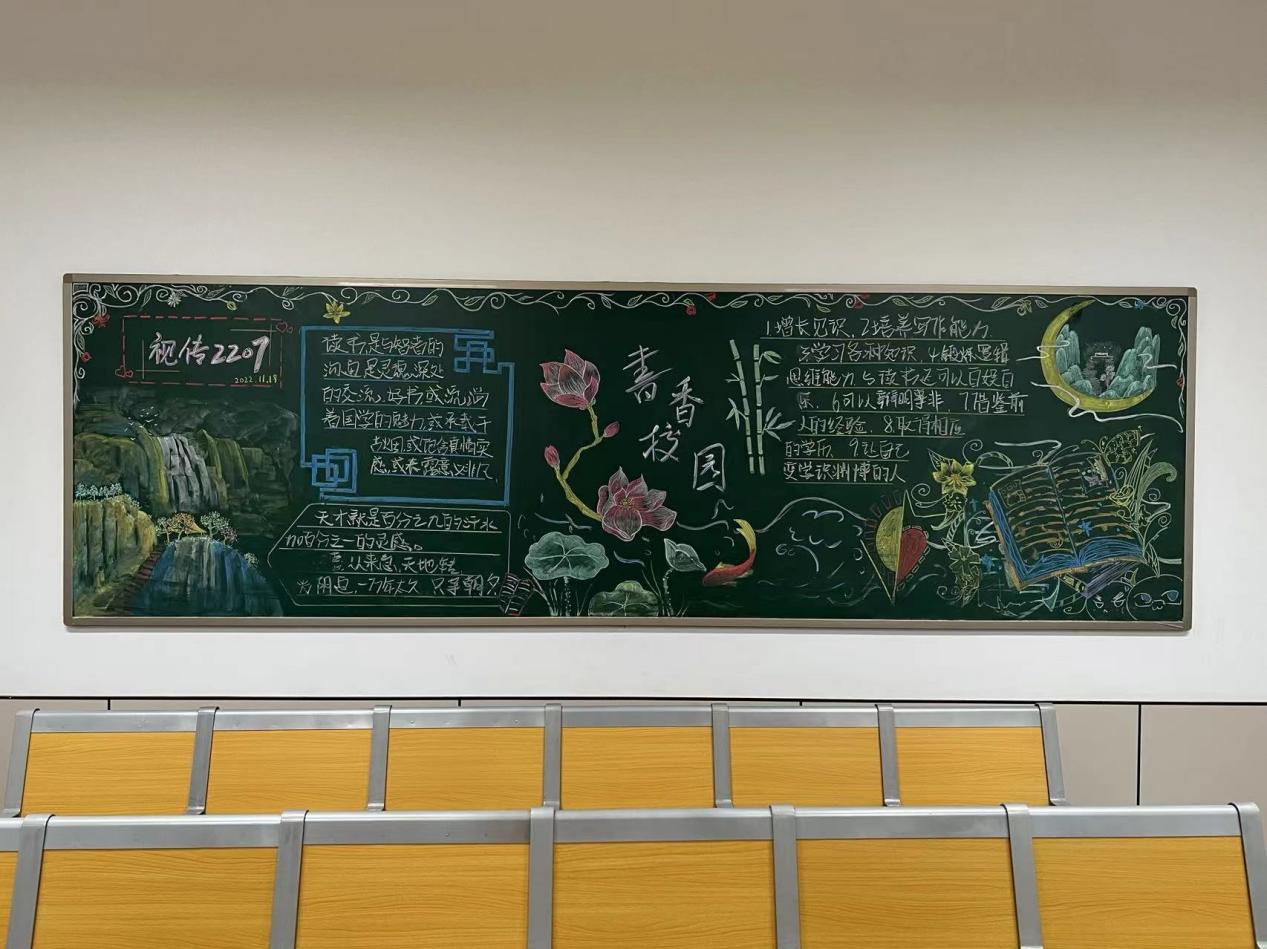 视传2207
2022.11.18
读书是与智者的
沟通是灵魂深处
的交流，好书或流淌
着国学的魅力或承载于
或包含真情实
感或
天才就是百分之九的汗水
加百分之一的灵感。
从来急，天地转
光阴迫，一万年太久 只争朝夕
书香校园
1增长见识、2培养写作能力
3学习各种知识 4锻炼逻辑
思维能力 5读书还可以自娱自
乐、6可以辨明事非、7借鉴前
人的经验、8取得相应
的学历、9让自己
变学识渊博的人